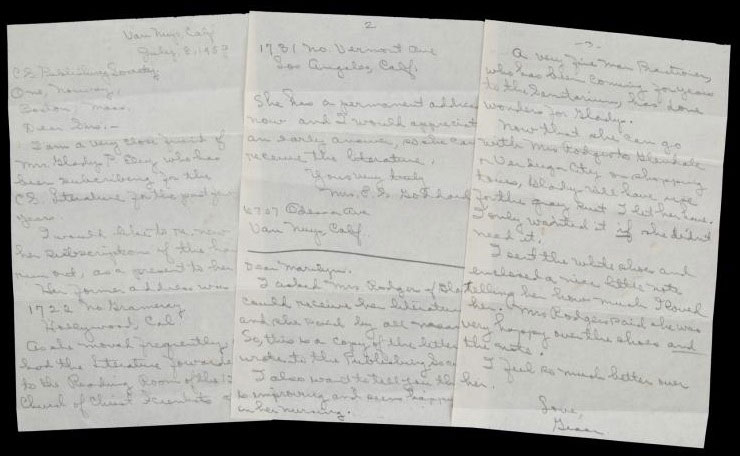 Van Nuys, Calif
July 8, 1953
C.S. Publishing Society
One, Norway,
Boston, Mass.
Dear Sirs.—
I am a very close friend of
Mrs. Gladys P. Eley who has
been subscribing for the
C.S. Literature for the past
years.
I would like to re-new
her subscription if the
run out, as a present to her
Her former address was
1722 No Gramercy
Hollywood, Cal.
As she moved frequently
had the literature forwarde
to the Reading Room of the
Church of Christ Scientists
2
1731 No. Vermont Ave
Los Angeles, Calif.
She has a permanent address
now and I would appreciat
an early answer, so she can
receive the literature.
Yours very truly
Mrs. E. S. Goddard
6707 Odessa Ave
Van Nuys Calif.
Dear Marilyn.
I asked Mrs Rodgers if Gla
could receive her literature
and she said by all means
So, this is a copy of the letter
wrote to the Publishing Soc
I also want to tell you th
is improving and seems happ
in her nursing.
3
A very fine man Practioner,
who has been coming for years
to the Sanitarium, has done
wonders for Gladys.
Now that she can go
with Mrs Rodgers to Glendale
or Verdugo City on shopping
tours, Gladys will have use
for the gray suit I let her have.
I only wanted it if she didn't
need it.
I sent the white shoes and
enclosed a nice little note
telling her how much I loved
her. Mrs Rodgers said she was
very happy over the shoes and
the note.
I feel so much better over
her.
Love,